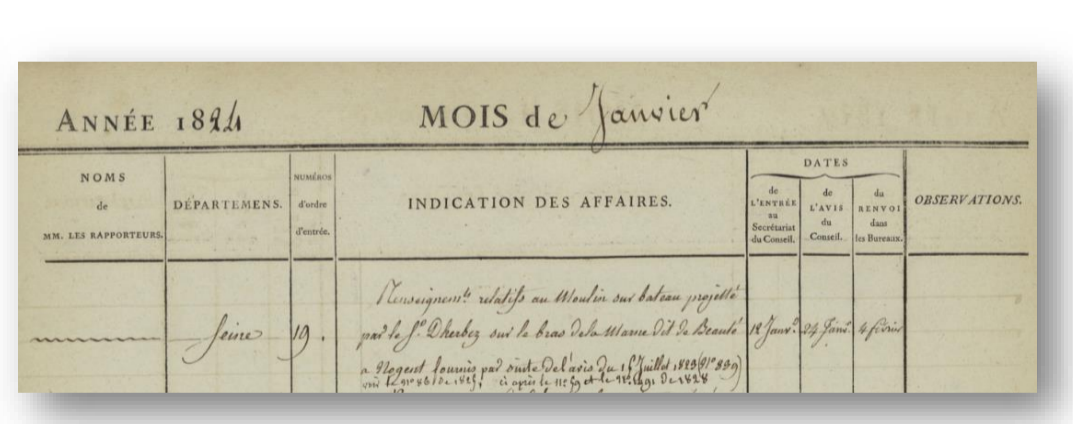 ANNÉE 1824
MOIS de Janvier
NOMS
de
MM. LES RAPPORTEURS.
DÉPARTEMENS.
NUMÉROS
d'ordre
d'entrée.
INDICATION DES AFFAIRES.
DATES
de
L'ENTRÉE
au
Secrétariat
du Conseil.
de
L'AVIS
du
Conseil.
du
RENVOI
dans
les Bureaux.
OBSERVATIONS.
Seine
19.
Renseignem.ts relatifs au Moulin sur bateau projetté
par le S.r Dherbez sur le bras de la Marne dit de Beauté
a Nogent fournis par suite de l'avis du Juillet 1823 (N.o 839)
voir le n.o de ci après le n.o 59 et le n.o de 1828
12 Janv.r
24 Janv.
4 février